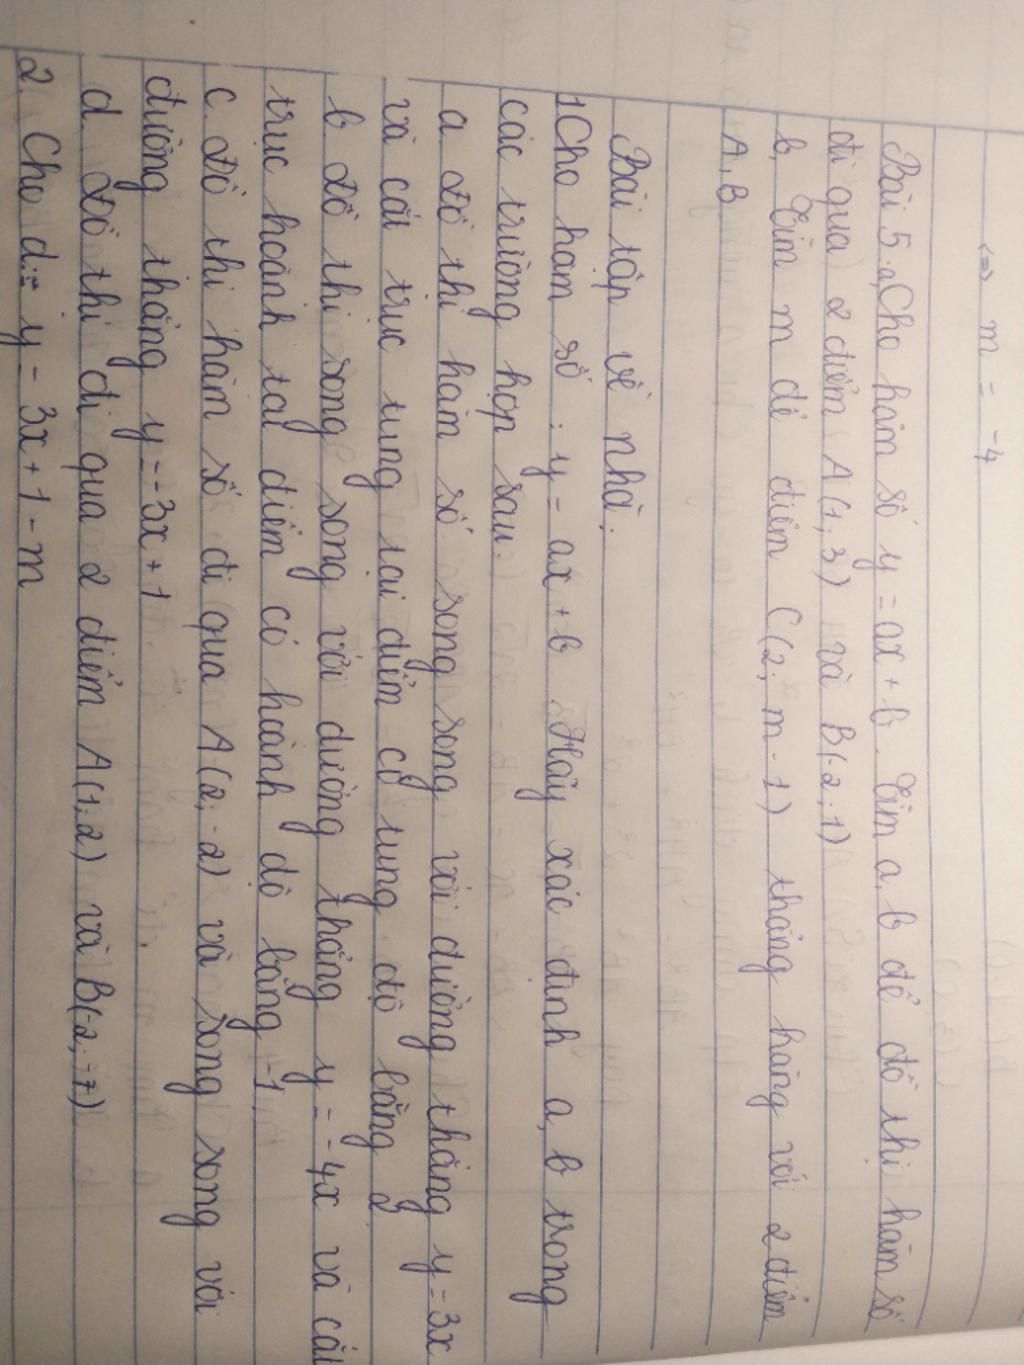 <=> m = -4
Bài 5: a, Cho hàm số y = ax + b. Tìm a, b để đồ thị hàm số
đi qua 2 điểm A(1; 3) và B(-2; 1)
b, Tìm m để điểm C(2; m - 1) thẳng hàng với 2 điểm
A, B
Bài tập về nhà:
1 Cho hàm số : y = ax + b. Hãy xác định a, b trong
các trường hợp sau:
a. Đồ thị hàm số song song với đường thẳng y = 3x
và cắt trục tung tại điểm có tung độ bằng 2
b. Đồ thị song song với đường thẳng y = -4x và cắt
trục hoành tại điểm có hoành độ bằng -1
c. Đồ thị hàm số đi qua A(2; -2) và song song với
đường thẳng y = -3x + 1
d. Đồ thị đi qua 2 điểm A(1; 2) và B(-2; -7)
2. Cho d: y = 3x + 1 - m